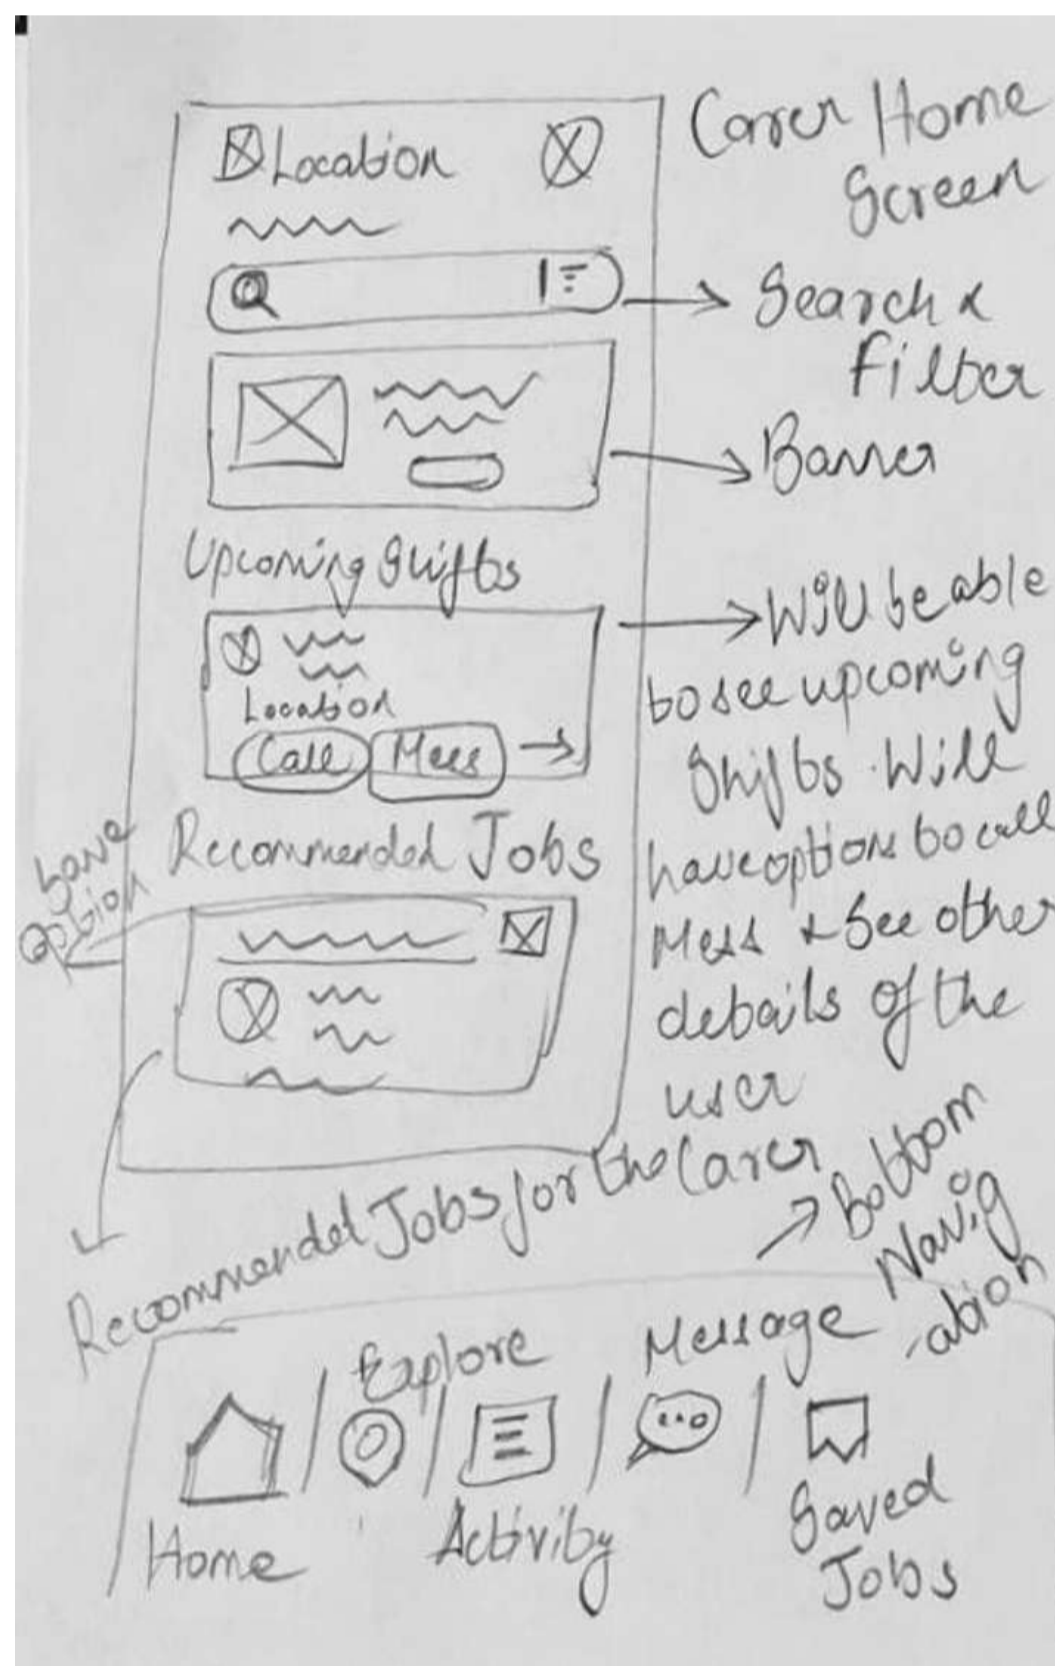 Carer Home
Screen
Location
Search &
Filter
Banner
Upcoming Shifts
Location
Call Mess
Will be able
to see upcoming
Shifts. Will
have options to call
Mess & See other
details of the
user
Recommended Jobs
Save
Option
Recommended Jobs for the Carer
Bottom
Navig
-ation
Home
Explore
Activity
Message
Saved
Jobs